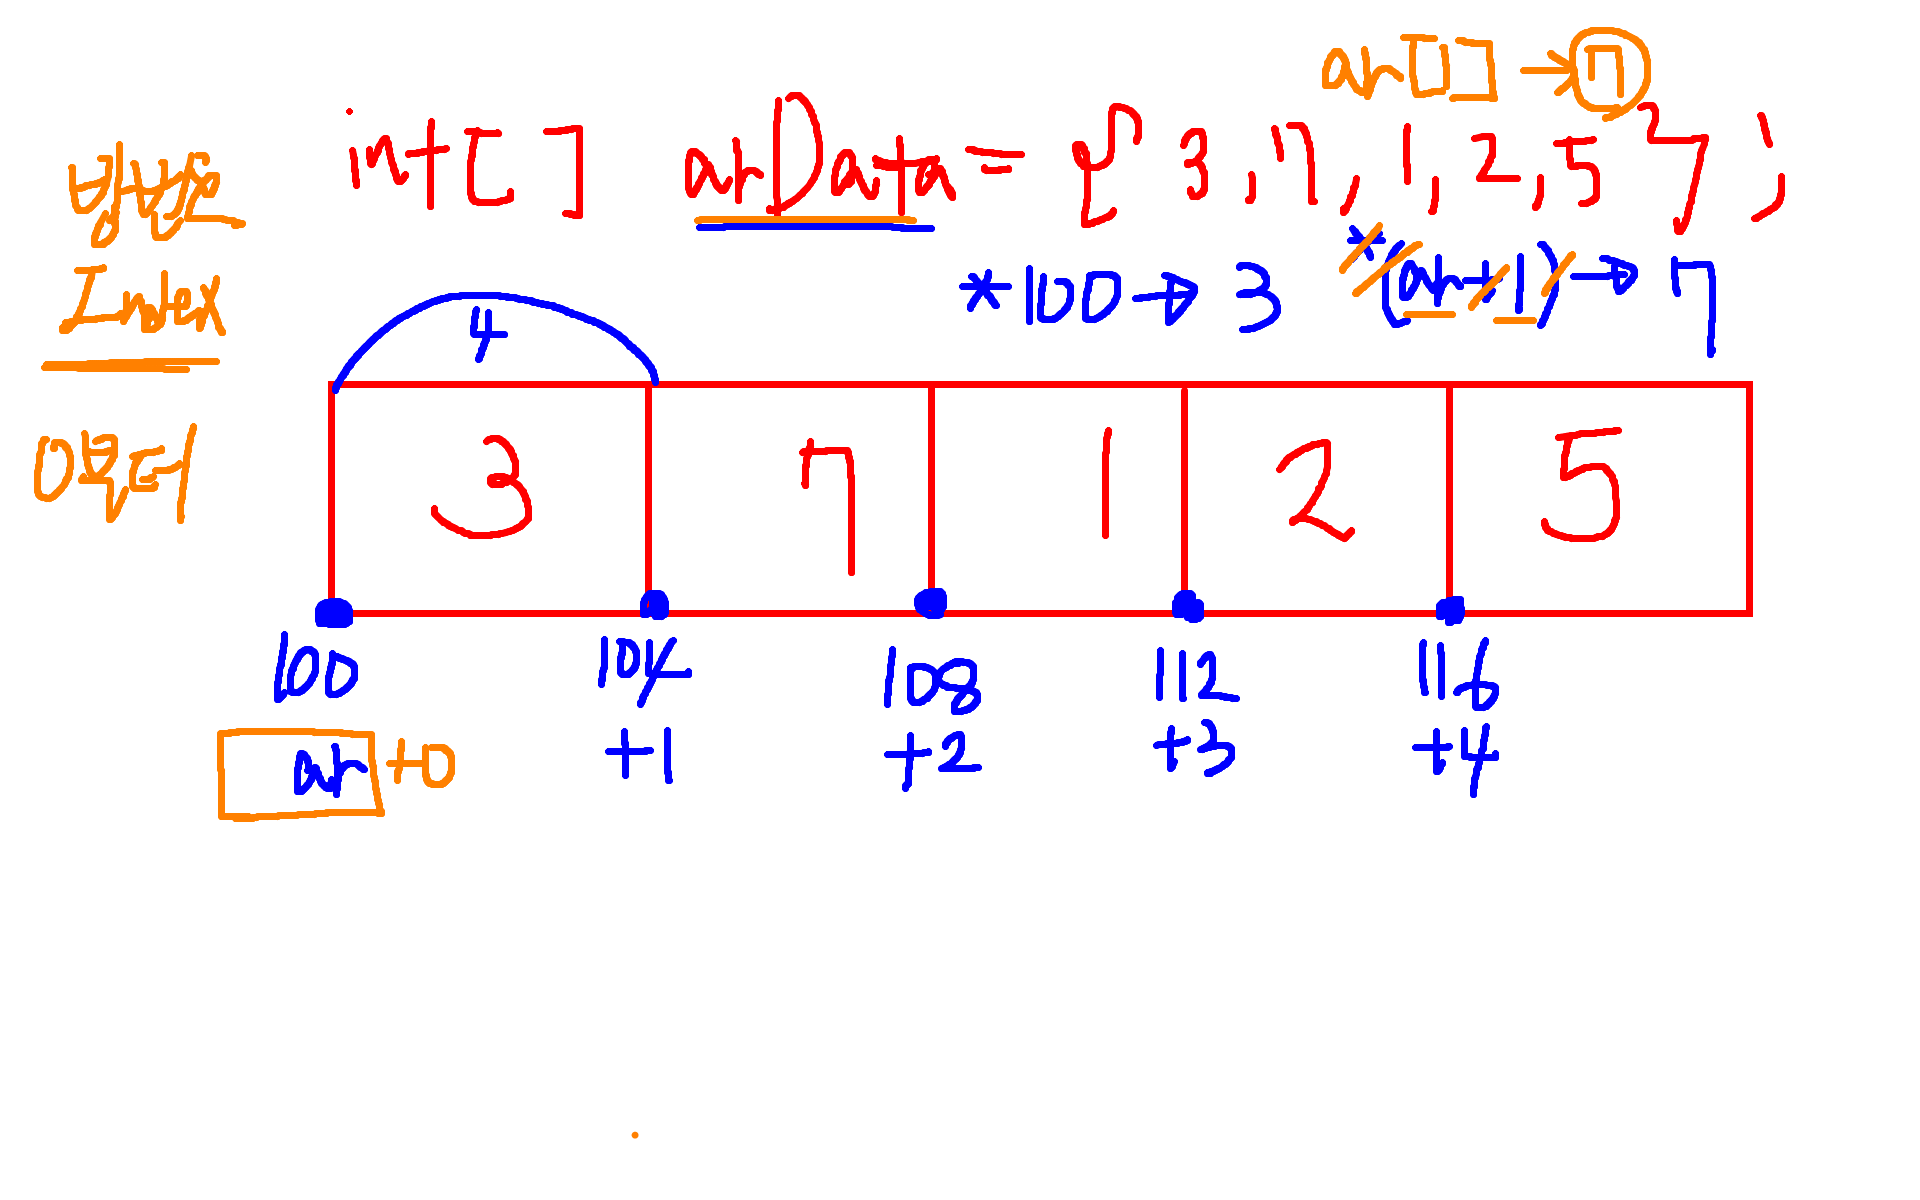 ar[1] → 7
int[] arData = { 3, 7, 1, 2, 5 };
방번호
Index
0부터
*100 → 3
*(ar+1) → 7
4
3 7 1 2 5
100 104 108 112 116
ar +0 +1 +2 +3 +4